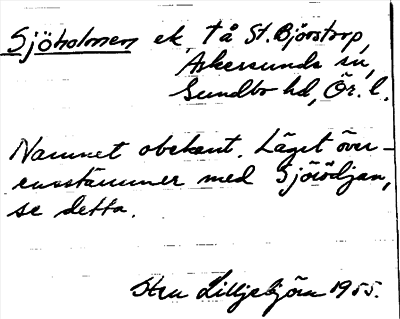 Sjöholmen ek † å St. Björstorp,
Askersunds sn,
Sundbo hd, Ör. l.
Namnet obekant. Läget över-
ensstämmer med Sjöödjan,
se detta.
Sten Lilljebjörn 1955.